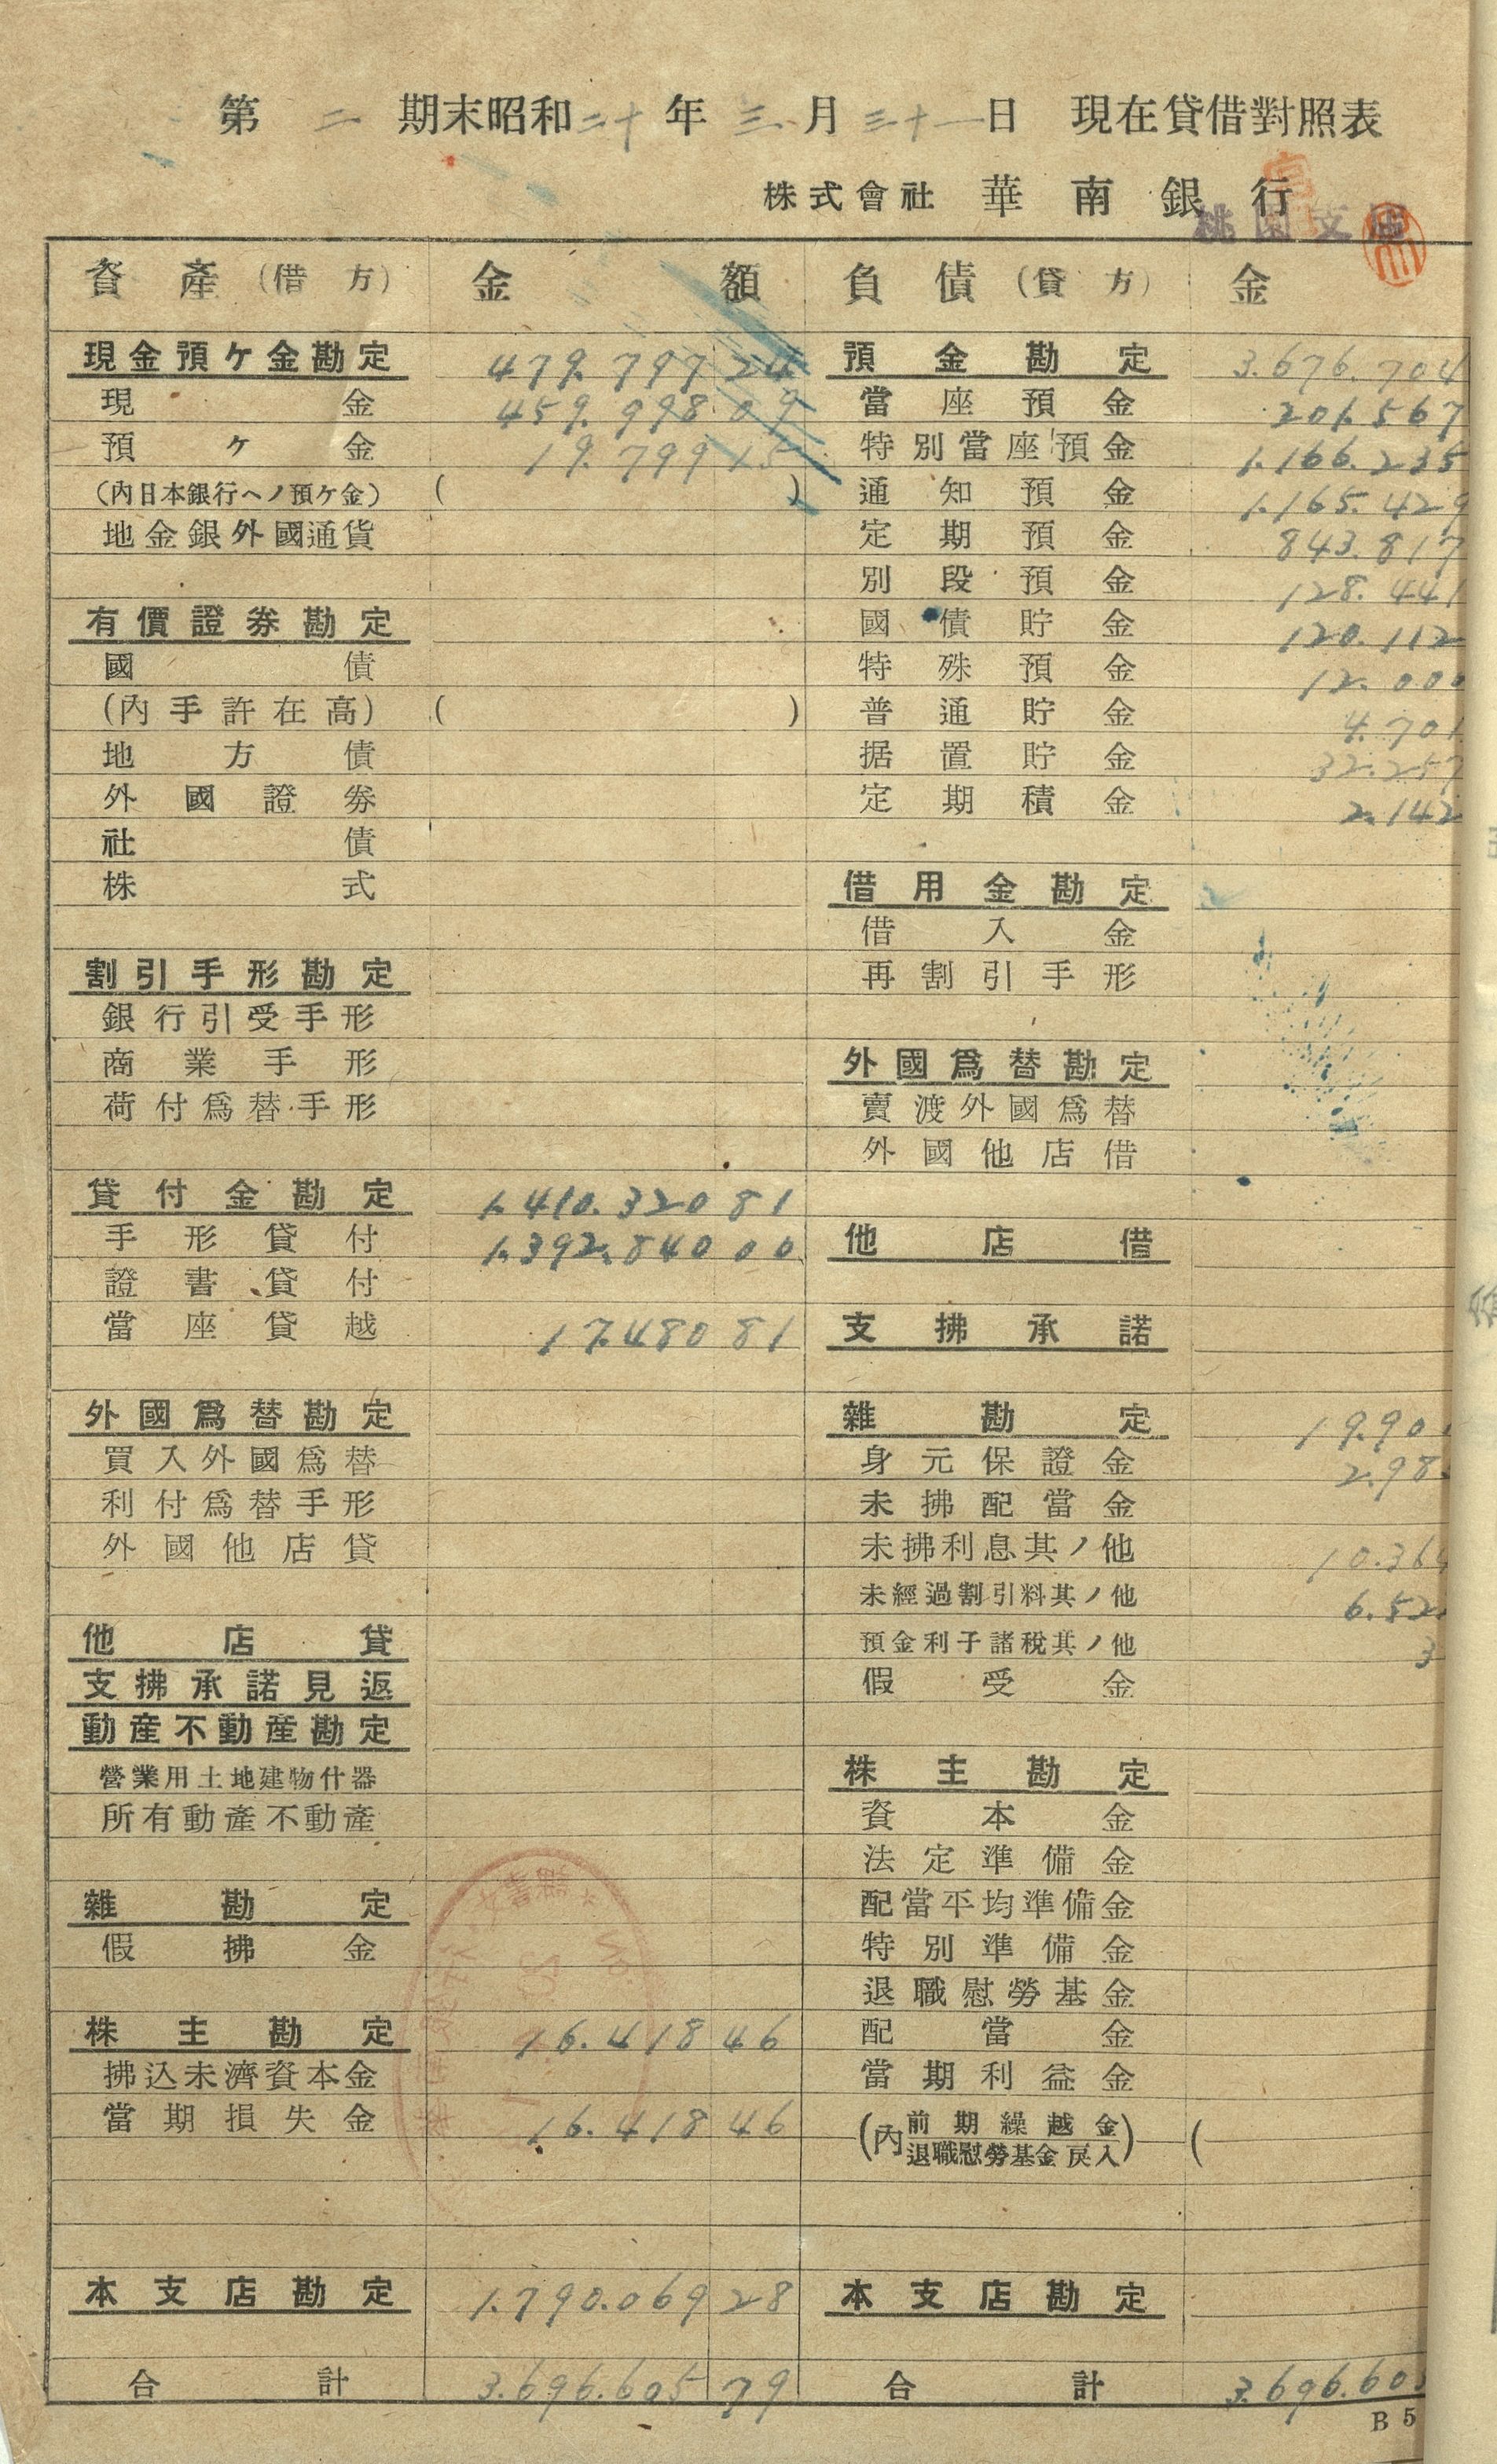 第 二 期末昭和二十年三月三十一日 現在貸借對照表
株式會社 華南銀行
桃園支店
資產(借方) 金額 負債(貸方) 金
現金預ケ金勘定 479.797 24 預金勘定 3.676.704
現金 459.998 09 當座預金 201.567
預ケ金 19.799 15 特別當座預金 1.166.235
(內日本銀行ヘノ預ケ金) ( ) 通知預金 1.165.429
地金銀外國通貨 定期預金 843.817
別段預金 128.441
有價證券勘定 國債貯金 120.112
國債 特殊預金 12.000
(內手許在高) ( ) 普通貯金 4.701
地方債 据置貯金 32.257
外國證券 定期積金 2.142
社債
株式 借用金勘定
借入金
割引手形勘定 再割引手形
銀行引受手形
商業手形 外國爲替勘定
荷付爲替手形 賣渡外國爲替
外國他店借
貸付金勘定 1.410.320 81
手形貸付 1.392.840 00 他店借
證書貸付
當座貸越 17.480 81 支拂承諾
外國爲替勘定 雜勘定 19.90
買入外國爲替 身元保證金 2.98
利付爲替手形 未拂配當金
外國他店貸 未拂利息其ノ他 10.36
未經過割引料其ノ他 6.52
他店貸 預金利子諸稅其ノ他 3
支拂承諾見返 假受金
動産不動産勘定
營業用土地建物什器 株主勘定
所有動產不動產 資本金
法定準備金
雜勘定 配當平均準備金
假拂金 特別準備金
退職慰勞基金
株主勘定 16.418 46 配當金
拂込未濟資本金 當期利益金
當期損失金 16.418 46 (內前期繰越金
退職慰勞基金戾入) (
本支店勘定 1.790.069 28 本支店勘定
合計 3.696.605 79 合計 3.696.605
B5